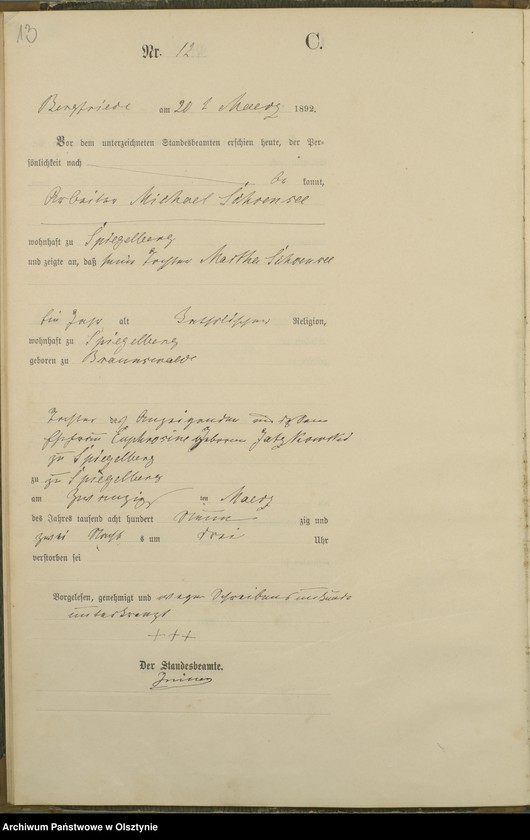 13
C.
Nr. 12
Bergfriede am 20 t Maerz 1892.
Vor dem unterzeichneten Standesbeamten erschien heute, der Per-
sönlichkeit nach
be kannt,
Arbeiter Michael Schoensee
wohnhaft zu Spiegelberg
und zeigte an, daß seine Tochter Martha Schoensee
Ein Jahr alt katholischer Religion,
wohnhaft zu Spiegelberg
geboren zu Braunswalde
Tochter des Anzeigenden und dessen
Ehefrau Euphrosine geborene Jatzkowski
zu Spiegelberg
zu zu Spiegelberg
am zwanzig ten Maerz
des Jahres tausend acht hundert neun zig und
zwei Nacht s um drei Uhr
verstorben sei
Vorgelesen, genehmigt und wegen Schreibensunkunde
unterkreuzt
+++
Der Standesbeamte.
Archiwum Państwowe w Olsztynie